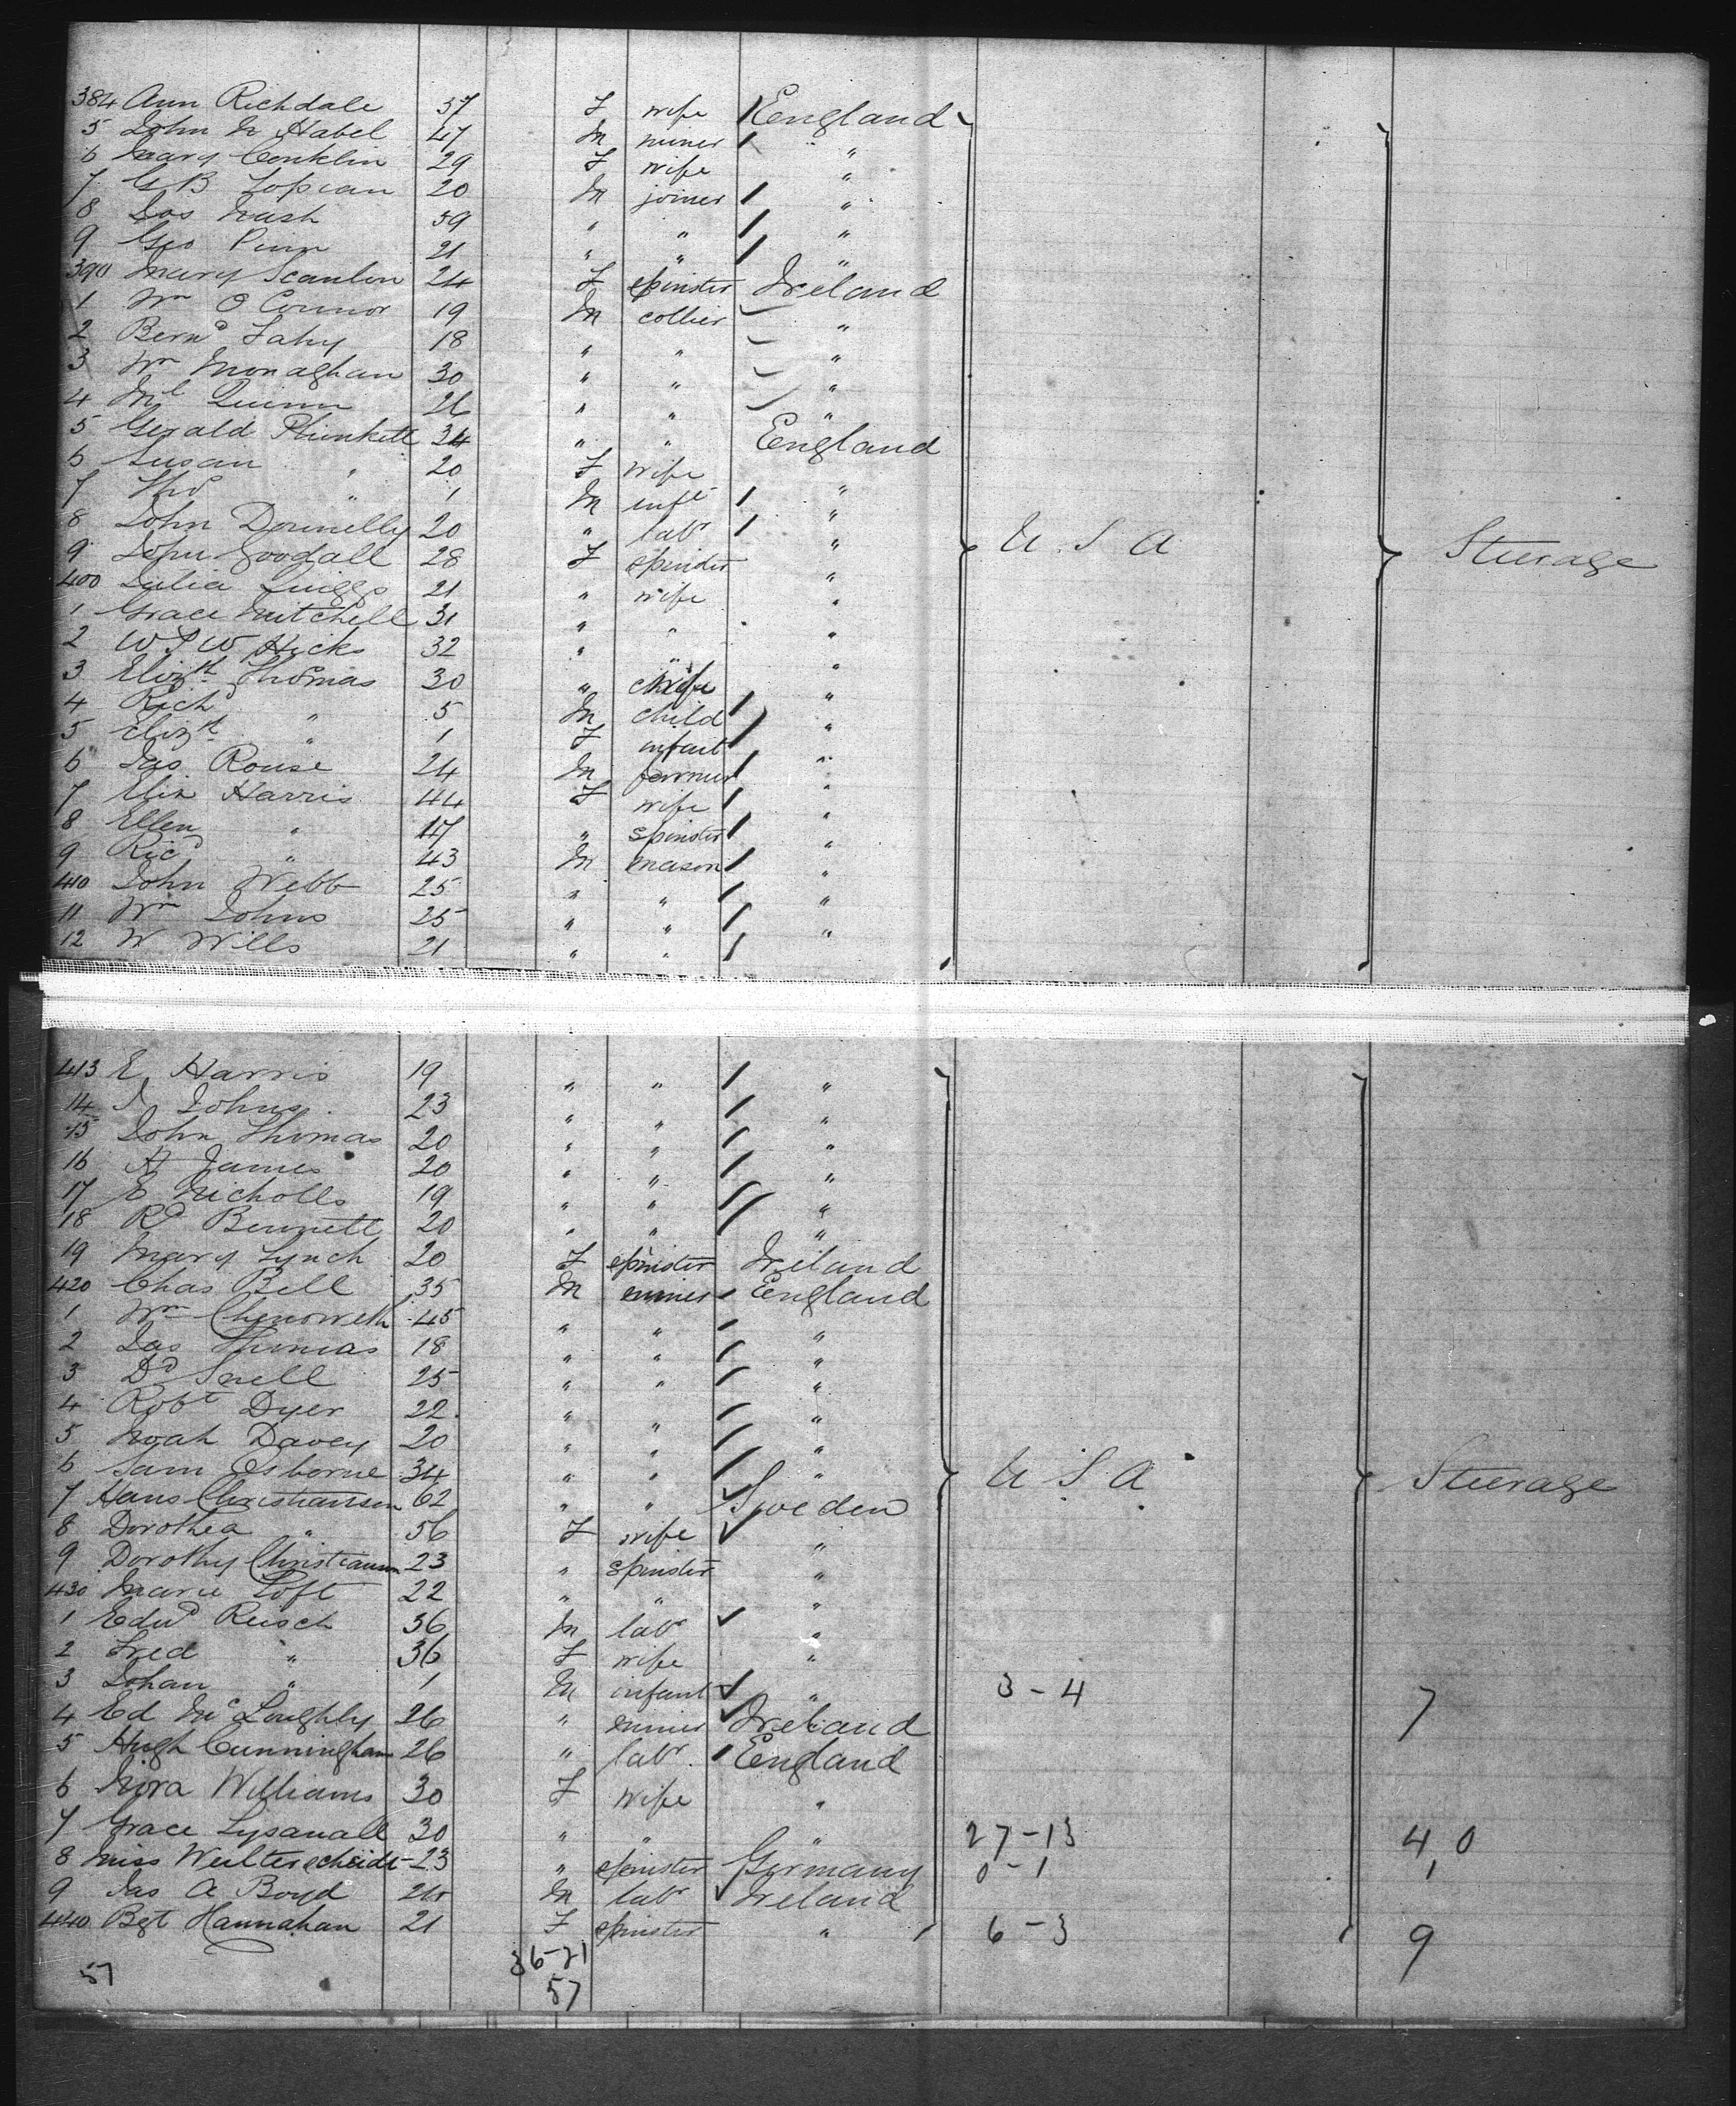 384 Ann Richdale 37 F wife England
5 John N Habel 47 M miner "
6 Mary Conklin 29 F wife "
7 G B Topian 20 M joiner "
8 Jos Nash 59 " " "
9 Geo Pinn 21 " " "
390 Mary Scanlon 24 F spinster Ireland
1 Wm O Connor 19 M collier "
2 Bernd Fahy 18 " " "
3 Wm Monaghan 30 " " "
4 Ml Quinn 26 " " "
5 Gerald Plunkett 34 " " England
6 Susan " 20 F wife "
7 Thos " 1 M inft "
8 John Donnelly 20 " labr " U S A Steerage
9 John Goodall 28 F spinster "
400 Julia 21 " wife "
1 Grace Mitchell 31 " " "
2 W J W Hicks 32 " " "
3 Elizth Thomas 30 " wife "
4 Richd " 5 M child "
5 Elizth " 1 F infant "
6 Jas Rouse 24 M farmer "
7 Eliz Harris 44 F wife "
8 Ellen " 17 " spinster "
9 Ricd " 43 M mason "
410 John Webb 25 " " "
11 Wm Johns 25 " " "
12 W Wills 21 " "
413 E Harris 19 " " "
14 J Johns 23 " " "
15 John Thomas 20 " " "
16 H James 20 " " "
17 E Nicholls 19 " " "
18 Rd Bennett 20 " " "
19 Mary Lynch 20 F spinster Ireland
420 Chas Bell 35 M miner England
1 Wm Chenoweth 45 " " "
2 Jas Thomas 18 " " "
3 Dd Snell 25 " " "
4 Robt Dyer 22 " " "
5 Noah Davey 20 " " "
6 Sam Osborne 34 " " " U S A Steerage
7 Hans Christiansen 62 " " Sweden
8 Dorothea " 56 F wife "
9 Dorothy Christiansen 23 " spinster "
430 Marie Loft 22 " " "
1 Edwd Reisch 36 M labr "
2 Fred " 36 F wife "
3 Johan " 1 M infant " 3-4 7
4 Ed McLoughly 26 " miner Ireland
5 Hugh Cunningham 26 " labr England
6 Nora Williams 30 F wife "
7 Grace Lysanall 30 " " " 27-13 40
8 Miss Weilterscheidt 23 " spinster Germany 0-1 1
9 Jas A Boyd 21 M labr Ireland
440 Bgt Hannahan 21 F spinster " 6-3 9
57 36-21
57